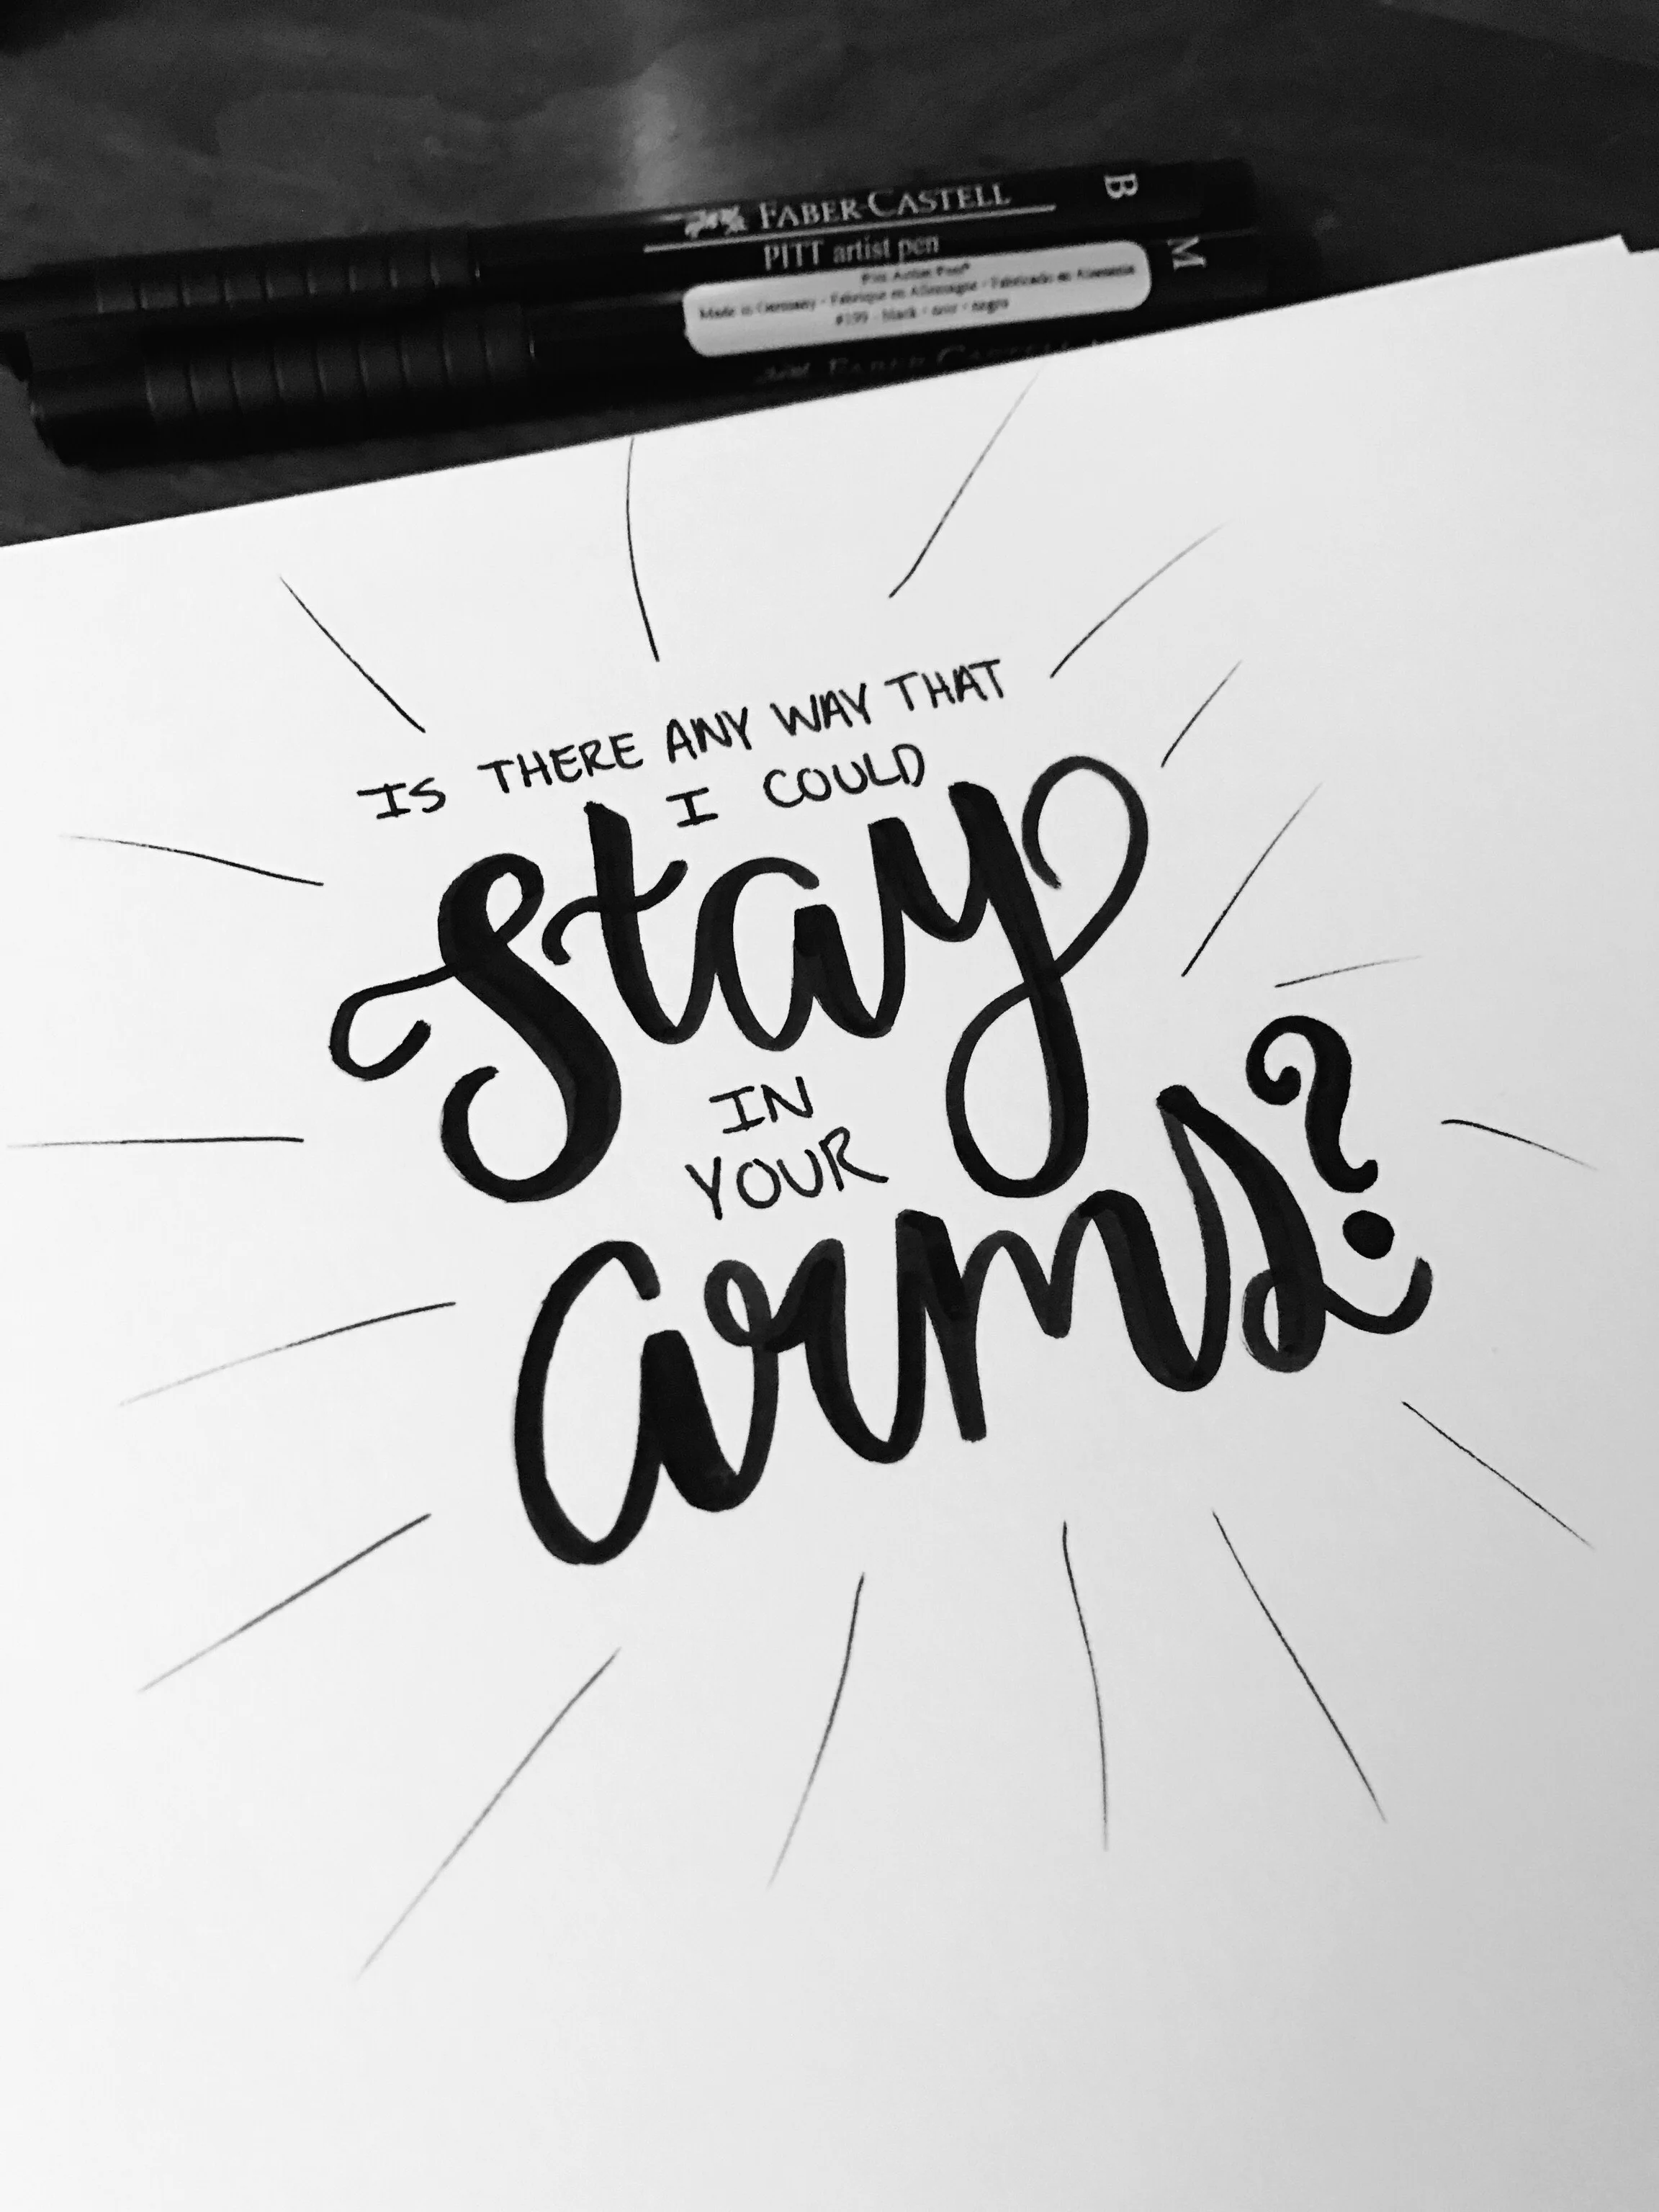 FABER-CASTELL B
PITT artist pen M
Pitt Artist Pen®
Made in Germany - Fabriqué en Allemagne - Fabricado en Alemania
#199 - black - noir - negro
FABER-CASTELL
IS THERE ANY WAY THAT
I COULD
Stay
IN
YOUR
arms?